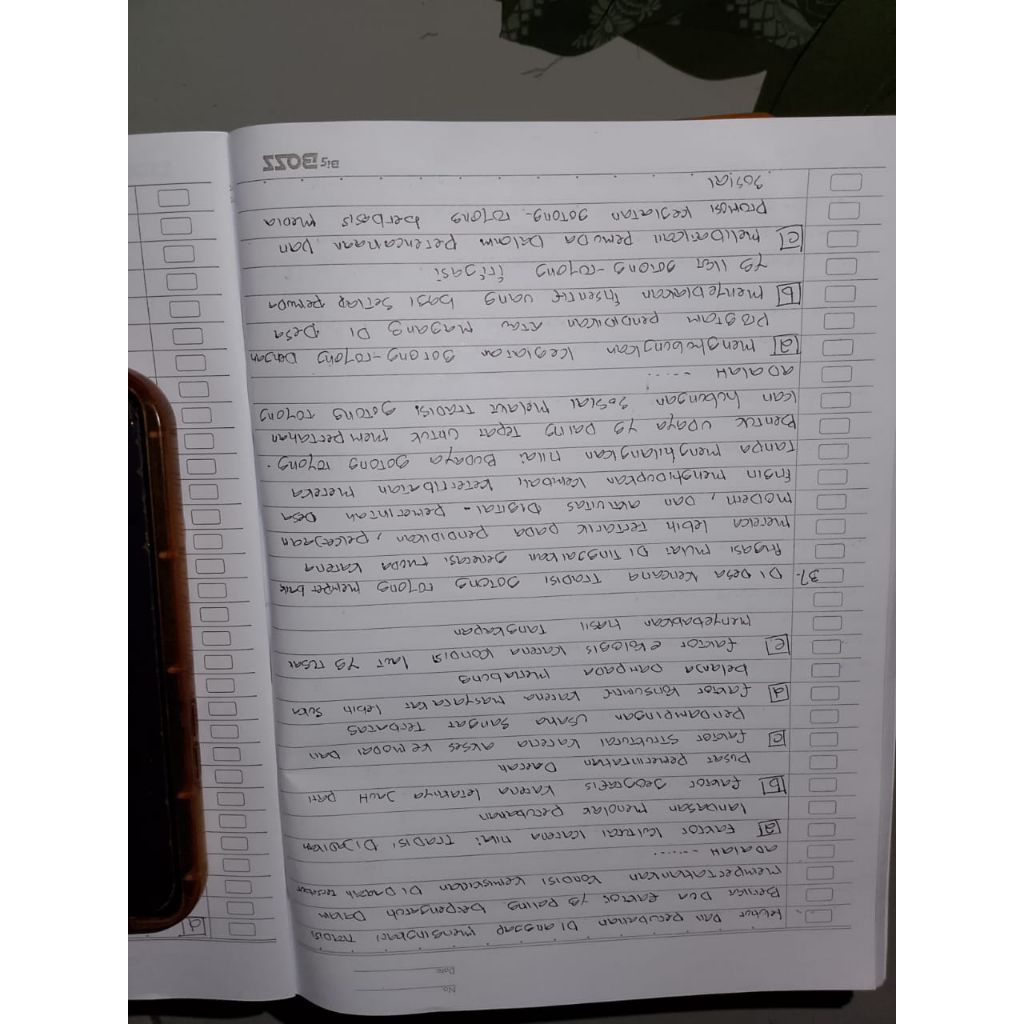 No.
Date
leluhur Dan perubahan Dianggap mengingkari Tradisi
Berikut Dua faktor yg paling berpengaruh Dalam
mempertahankan kondisi kemiskinan Di Daerah tersebut
adalah .....
[a] faktor kultural karena nilai Tradisi Dijadikan
landasan Menolak perubahan
[b] faktor geografis karena letaknya Jauh Dari
pusat Pemerintahan Daerah
[c] faktor struktural karena akses ke modal Dan
pendampingan usaha sangat terbatas
[d] faktor konsumtif karena masyarakat lebih suka
belanja Daripada Menabung
[e] faktor ekologis karena kondisi laut yg rusak
menyebabkan hasil Tangkapan
37. Di Desa kencana Tradisi gotong royong memperbaiki
irigasi mulai Di Tinggalkan generasi muda karena
mereka lebih tertarik pada pendidikan, pekerjaan
modern, Dan aktivitas Digital. Pemerintah Desa
ingin menghidupkan kembali keterlibatan mereka
Tanpa menghilangkan nilai Budaya gotong royong.
Bentuk upaya yg paling Tepat untuk mempertahan
kan hubungan sosial melalui Tradisi gotong royong
adalah .....
[a] menghubungkan kegiatan gotong-royong Dengan
program pendidikan atau magang Di Desa
[b] menyediakan insentif uang bagi setiap pemuda
yg ikut gotong-royong irigasi
[c] melibatkan pemuda Dalam perencanaan Dan
promosi kegiatan gotong-royong berbasis media
sosial
Big BOZZ
[d]